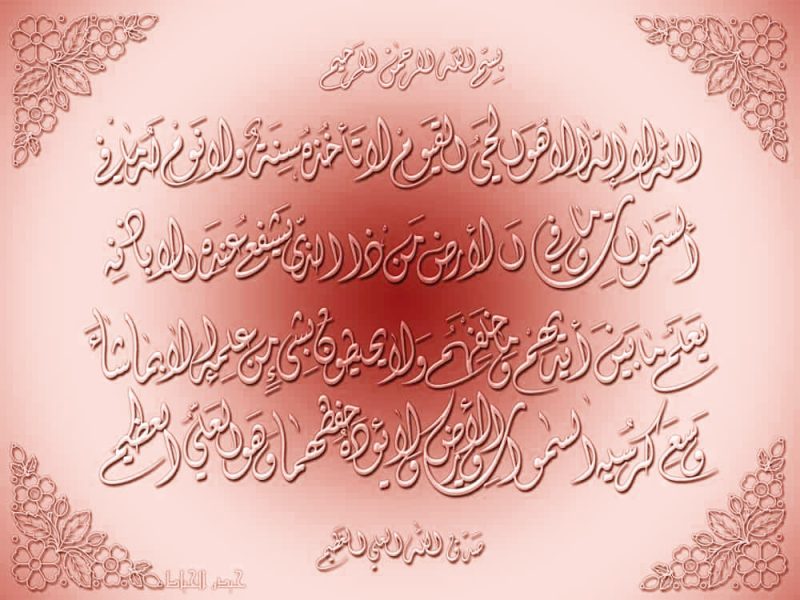 بسم الله الرحمن الرحيم
الله لا إله الا هو الحي القيوم لا تأخذه سنة ولا نوم له ما في
السموات وما في الأرض من ذا الذي يشفع عنده الا باذنه
يعلم ما بين أيديهم وما خلفهم ولا يحيطون بشيء من علمه إلا بما شاء
وسع كرسيه السموات والأرض ولا يؤده حفظهما وهو العلي العظيم
صدق الله العلي العظيم